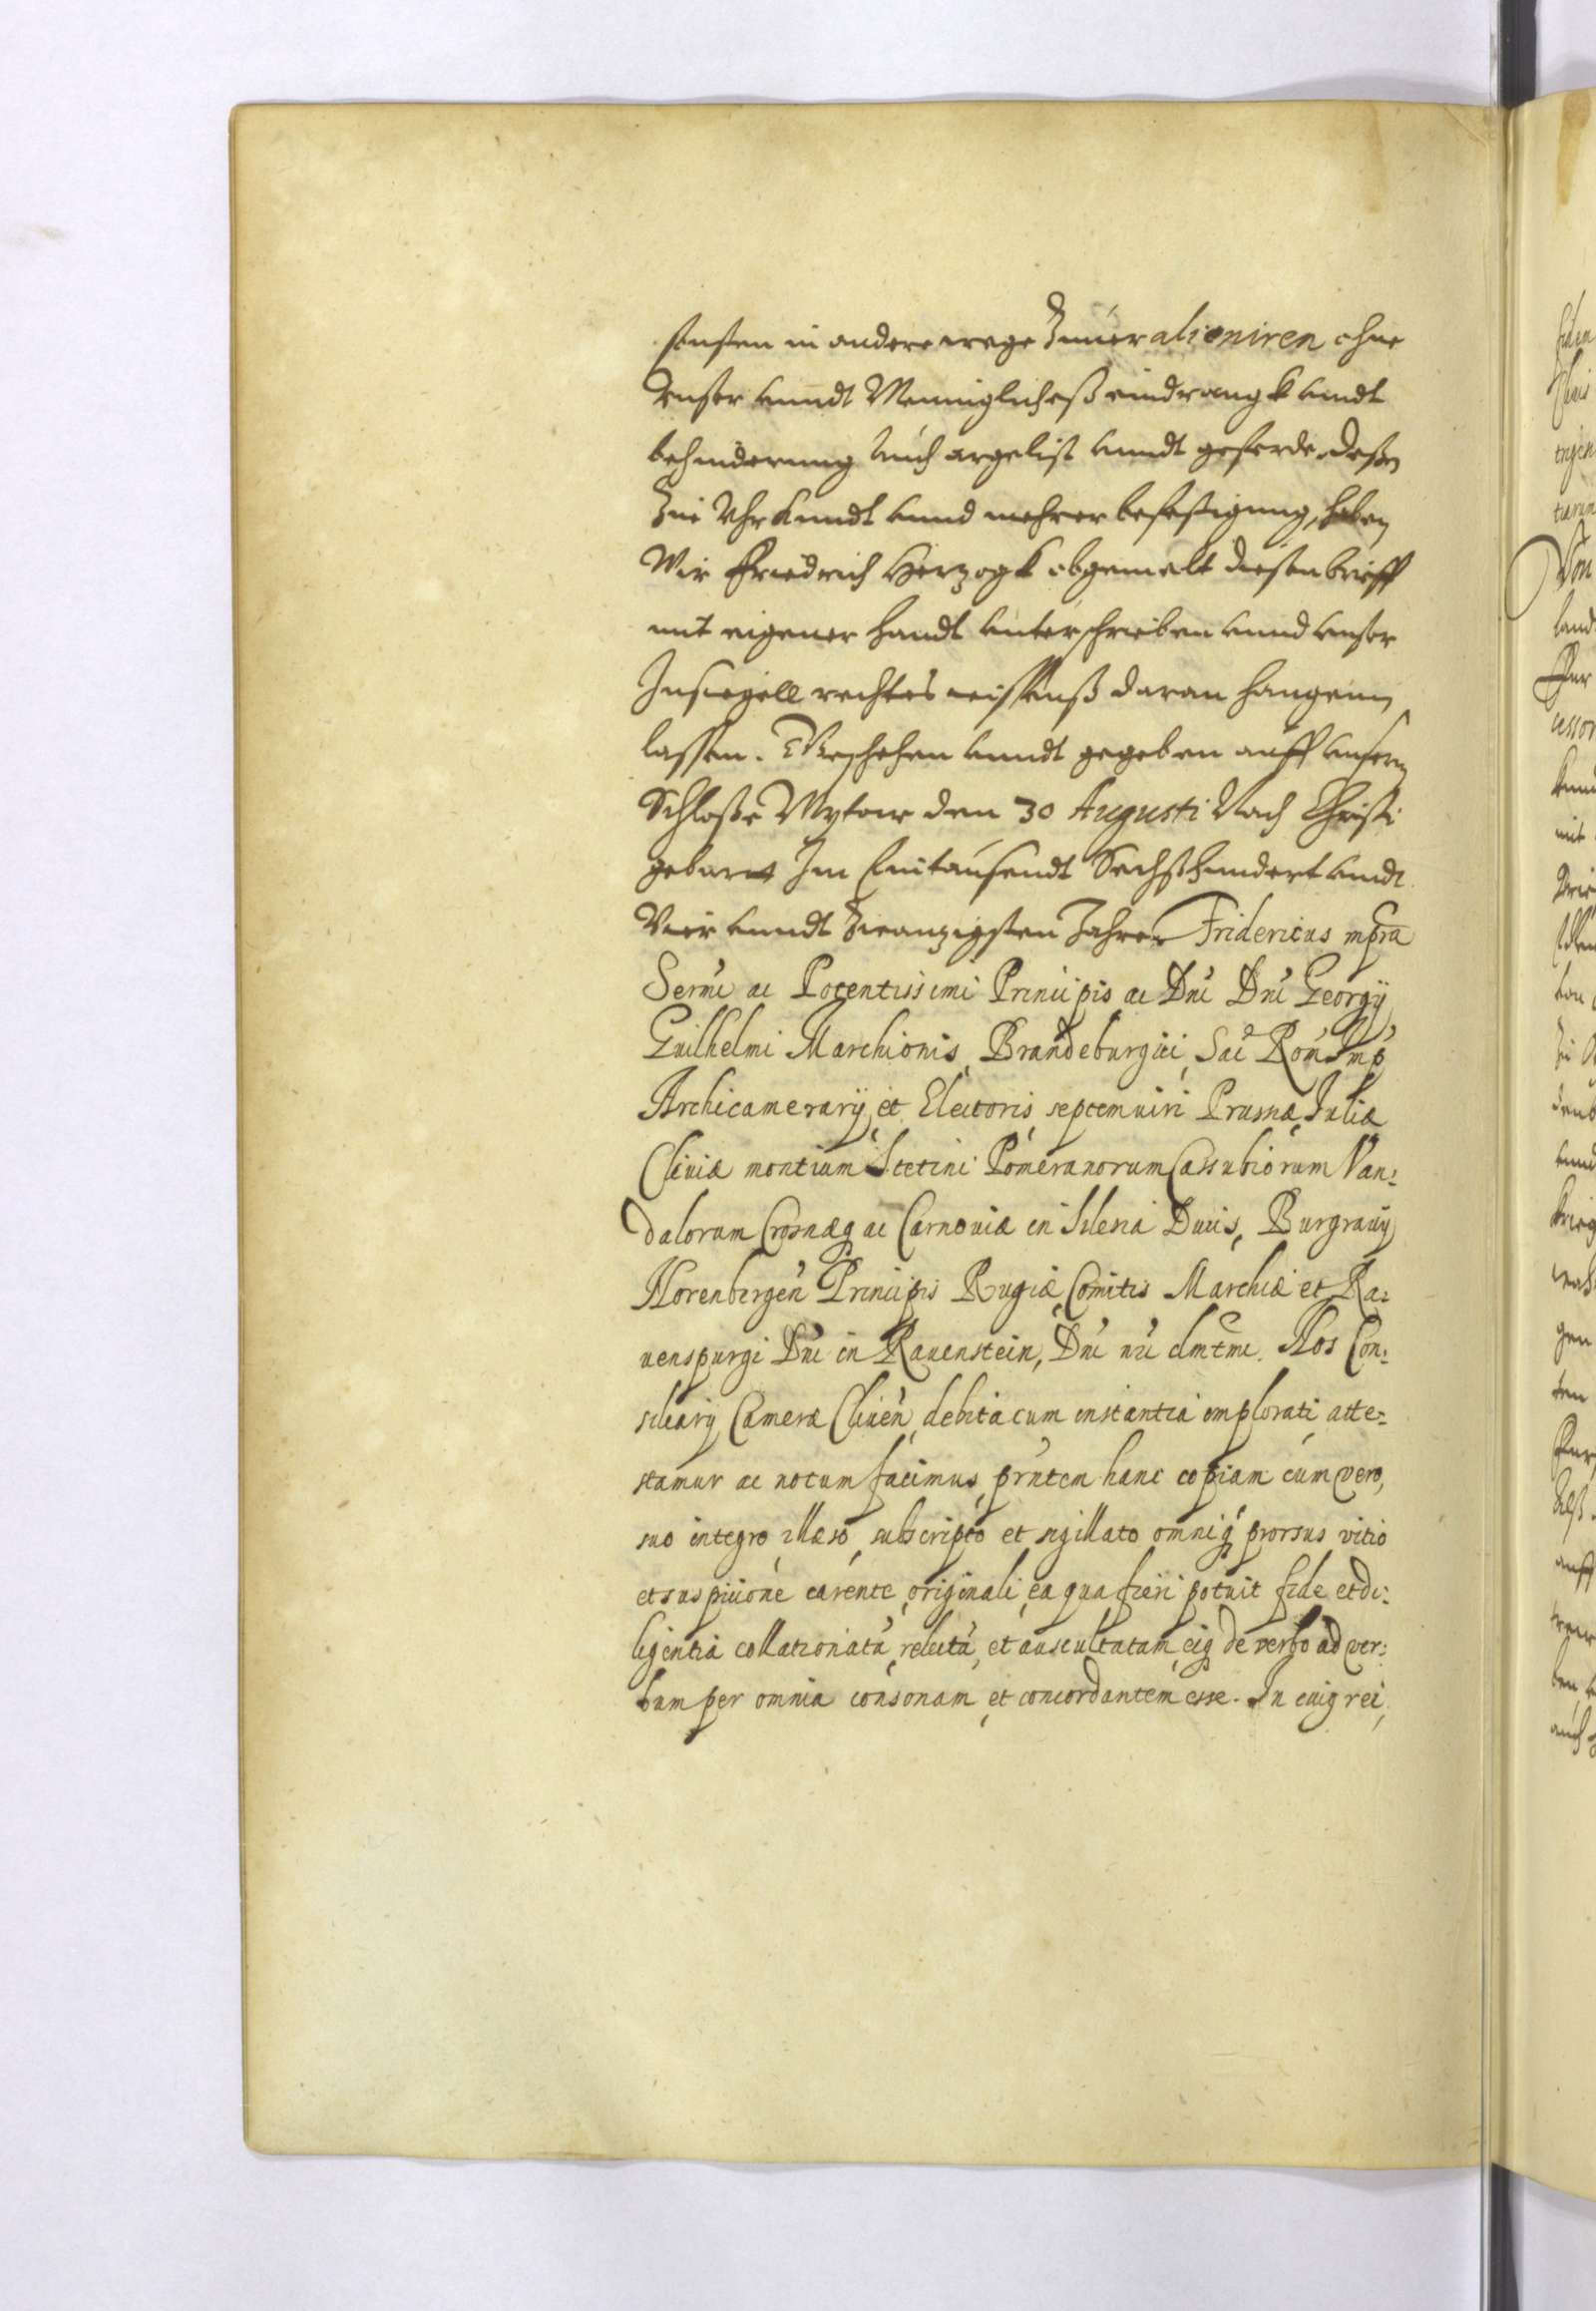 sonsten in andere wege Zuuer alieniren ohne
Unser unndt Menniglicheß eindrangk unndt
behinderung Auch argelist unndt geferde. Deßen
Zue Uhrkundt unnd mehrer befestigung, haben
Wir Friedrich Hertzogk obgemelt diesen brieff
mit eigener handt unterschrieben unnd unser
Insiegell rechtes wissenß daran hangenn
lassen. Geschehen unndt gegeben auff unserm
Schloße Mytow den 30 Augusti Nach Christi
geburt Im Eintausendt Sechßhundert unndt
Vier unndt Zwanzigsten Jahre Fridericus mpra
Sermi ac Potentissimi Principis ac Dni Dni Georgij
Guilhelmi Marchionis Brandeburgici, Sac Rom Imp
Archicamerarij et Electoris septemuiri Prussiæ Juliæ
Cliuiæ montium Stetini Pomeranorum Cassubiorum Van:
dalorum Crosnæq ac Carnouiæ in Silesia Ducis, Burgrauij
Norenbergen Principis Rugiæ Comitis Marchiæ et Ra:
uenspurgi Dni in Rauenstein, Dni nri clmtmi. Nos Con:
siliarij Cameræ Cliuen, debita cum instantia implorati atte:
stamur ac notum facimus, prntem hanc copiam cum vero,
suo integro illæso, subscripto et sigillato omniq prorsus vitio
et suspicione carente, originali, ea qua fieri potuit fide et di:
ligentia collationatã, relectã, et auscultatam, eiq de verbo ad ver:
bum per omnia consonam, et concordantem esse. In cuiq rei,